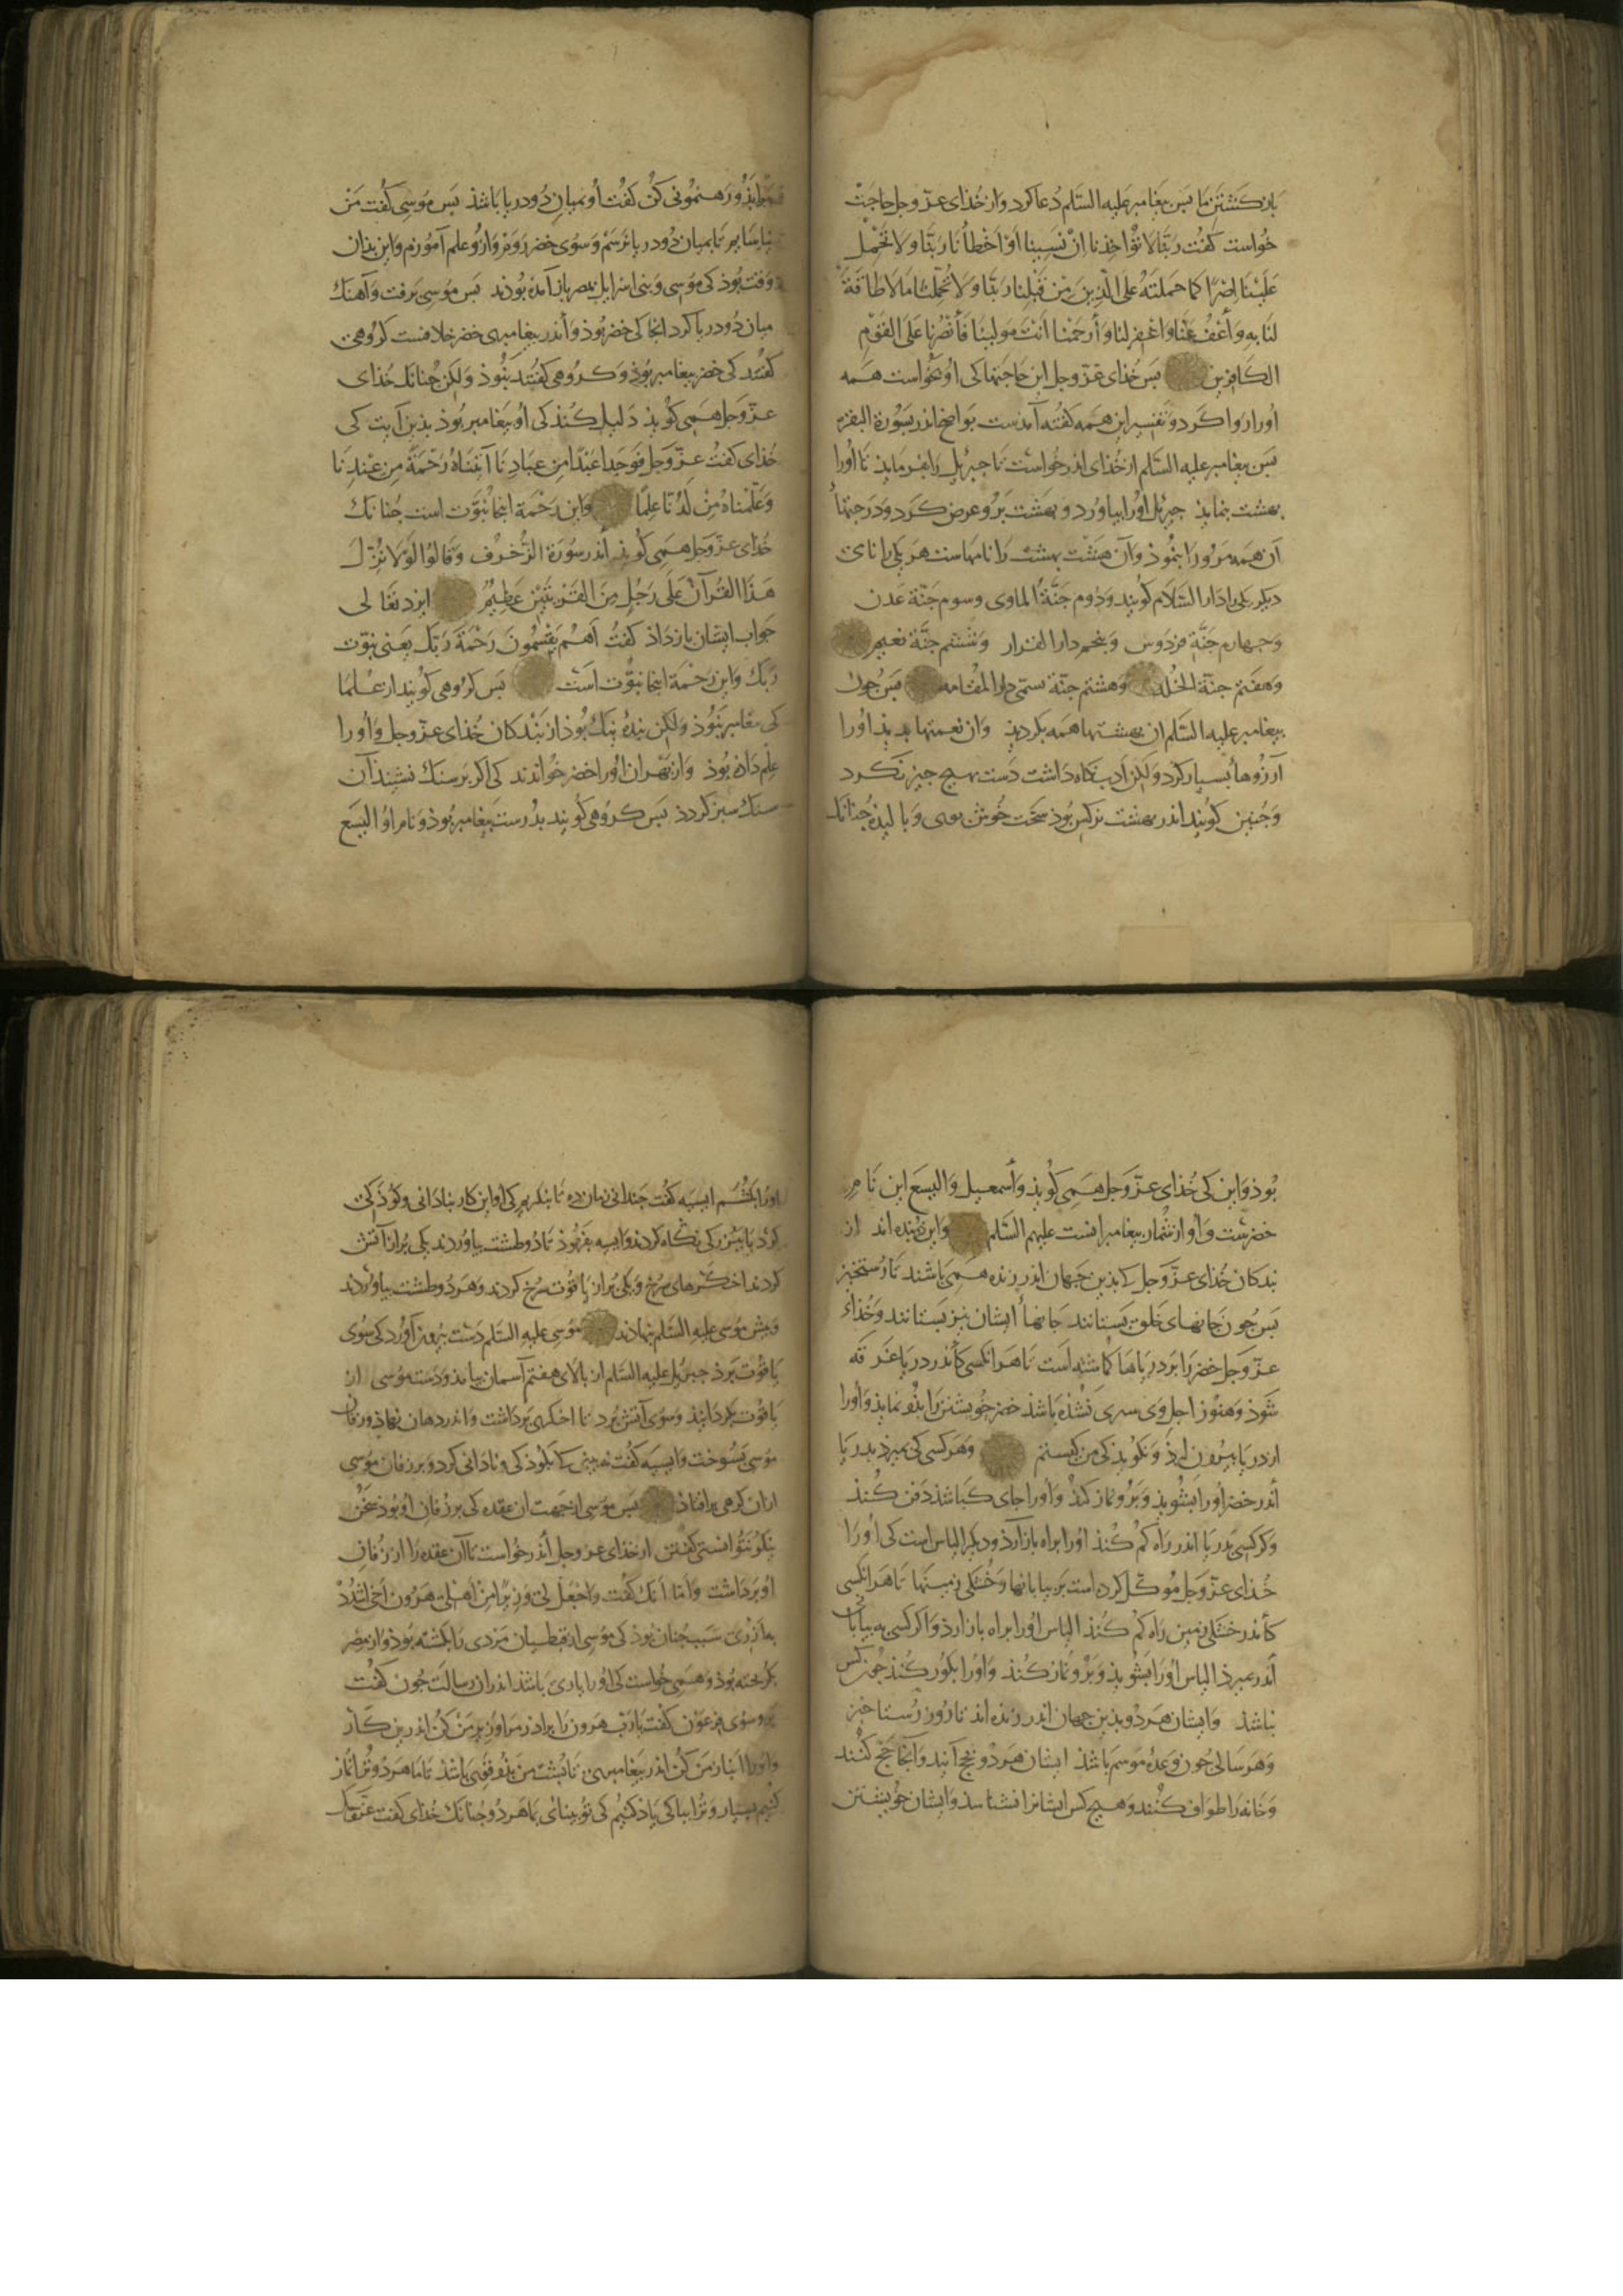 باز کشتن ما بس بیغامبر علیه السَّلم دُعا کرد و از خُذای عزّ وجل حاجت
خُواست کفت رَبَّنا لا تُؤاخِذنا اِنْ نَسِینا اَوْ اَخْطَأنا رَبَّنا وَلا تَحْمِل
عَلَیْنا اِصْرًا کَما حَمَلتَهُ عَلَی الَّذِینَ مِن قَبْلِنا رَبَّنا وَلا تُحَمِّلنا مَا لا طاقَةَ
لنا بِهِ وَاَعْفُ عَنّا وَاغْفِر لنا وَاَرحَمْنا اَنْتَ مَولینَا فَاَنْصُرْنا عَلَی القَوْمِ
الکافِرین بس خُذای عزّ وجل این حاجتها کی اُو بخواست همه
اُورا رَوا کرد و تفسیر این همه کفته آمذست بواضحا اندر سورة البقره
بس بیغامبر علیه السّلم از خُذای اندر خُواست تا جبرئیل را بفرمایذ تا اُورا
بهشت بنمایذ جبرئیل اُورا بیاورد و بهشت بَرُو عرض کرد و دَرَجتهاء
آن همه مَرُورا بنموذ و آن هشت بهشت را نامهاست هر یکی را نامی
دیکر یکی را دَارُ السّلام کویند و دوم جَنَّةُ الماوی و سوم جَنّة عَدن
وجهارم جَنَّةِ فردَوس وبنجم دارالقرار وششم جنَّة نعیم
وَهفتم جنّة الخُلد وَهشتم جنّة سمّی دارالمقامه بس جون
بیغامبر علیه السّلم ان بهشتها همه بکردیذ وان نعمتها بدیذ اورا
آرزُوها بسیار کرد وَلکن اَدَب نکاه دَاشت دَست بهیج جیز نکرد
وَجُنین کویند اندر بهشت نرکس بُوذ سخت خُوش بوی وَبالیذه جُنانک
رَهنمُونی کُن کفت اُو بمیان دُو دریا باشذ بس مُوسی کفت مَن
نیاسایم تا بمیان دُو دریا برَسَم وَسوی خضر رَوَم واز وعلم آموزم واین بذان
وَقت بُوذ کی مُوسی وَبنی اسرایل بمصر باز آمذه بُوذند بس مُوسی برفت وَآهنک
میان دُو دریا کرد انجا کی خضر بُوذ وَاندر بیغامبری خضر خلافست کرُوهی
کفتند کی خضر بیغامبر بُوذ وَکرُوهی کفتند نبُوذ وَلکن جُنانک خُذای
عزّ وَجل همی کُویذ دَلیل کُنذ کی اُو بیغامبر بُوذ بذین آیت کی
خُذای کفت عزّ وَجل فَوَجَدا عَبْدًا مِن عِبادِنا آتیْناهُ رَحْمَةً مِن عِنْدِنا
وَعَلَّمْناهُ مِنْ لَدُنّا عِلمًا وَاین رَحْمَة اینجا نبُوّت است جُنانک
خُدای عزّ وَجل همی کویذ اَندر سُورَة الزُّخْرُف وَقالُوا لَوْلا نُزِّلَ
هذا القُرآنُ عَلَی رَجُلٍ مِنَ القَریَتَیْنِ عَظِیْمٍ ایزد تعالی
جَواب ایشان باز داذ کفت اَهُمْ یَقْسِمُونَ رَحْمَةَ رَبِّکَ یعنی نبوّت
رَبّک وَاین رَحْمَة اینجا نبوّت است بس کرُوهی کویند از عُلما
کی بیغامبر نبُوذ وَلکن بندهٔ نیک بُوذ از بَندکان خُذای عزّ وجل وَاُورا
عِلم دَاذه بُوذ وَاز بهر ان اورا خضر خُواندند کی اکر بَر سنک نشیند آن
سنک سبز کردذ بس کرُوهی کویند بدُرست بیغامبر بُوذ وَنام اوُ الیسَع
بُوذ وَاین کی خُذای عزّ وَجل همی کُویذ وَاسمعیل وَالیسَع این نام
خضرست وَاُو از شمار بیغامبرانست علیهم السّلم وَاین دو بنده اند از
بندکان خُذای عزّ وَجل کی بذین جهان اندر زنده همی باشند تا رستخیز
بس جُون جانهای خَلق بستانند جانهاء ایشان نیز بستانند وَخُذاء
عزّ وَجل خضر را بَر دریاها کماشته است تا هر انکسی کاندر دریا غرقه
شَوذ وَهنوز اجل وَی سبری نشذه باشذ خضر خویشتن را بذو نمایذ وَاُورا
از دریا بیرُون ارذ وَنکویذ کی من کیستم وَهر کسی کی بمیرذ بدریا
اَندر خضر اُورا بشویذ وَبَرُو نماز کنذ وَاُورا جای کباشذ دَفن کُنذ
وَکر کسی بَدریا اندر رَاه کم کُنذ اورا براه باز آرذ ودیکر الیاس است کی اورا
خُذای عزّ وَجل مُوکّل کرده است بَر بیابانها وَخُشکی زمینها تا هر انکسی
کاندر خشکی زمین رَاه کم کُنذ الیاس اورا براه باز ارذ وَاکر کسی به بیابان
اندر بمیرذ الیاس اورا بشویذ وَبَرُو نماز کُنذ وَاورا بکور کُنذ جُون کس
نباشذ وَایشان هر دُو بذین جهان اندر زنده اند تا روز رُستاخیز
وَهر سالی جُون وَعدهٔ مَوسم باشذ ایشان هر دُو بحج آیند وَانجا حَج کنند
وَخانه را طواف کُنند وَهیج کس ایشانرا نشناسد وَایشان خویشتن
اورا بکشم ایسیه کفت جندانی زمان ده تا بنکریم کی او این کار بنادانی وکوذکی
کرد
کردند اخکرهای سرخ ویکی بُر از یاقوت سرخ کردند وهر دُو طشت بیاورند
وبیش موسی علیه السّلم بنهادند موسی علیه السّلم دَست بیرون آورد کی سوی
یاقوت برذ جبرئیل علیه السّلام از بالای هفتم آسمان بیامذ وَدست موسی از
یاقوت بکردانیذ وسوی آتش برد تا اخکری برداشت وَاندر دهان نهاذ وزفان
موسی بسُوخت وایسیه کفت نه بینی کی کوذکی ونادانی کرد وبر زفان موسی
ازان کرهی برافتاذ بس موسی از جهت ان عقده کی بر زفان اُو بوذ سخن
نیکو نتوانستی کفتن از خذای عز وجل اندر خواست تا آن عقده را از زفان
او برداشت وَاما آنک کفت وَاجْعَلْ لی وَزِیرًا مِنْ اَهْلی هَرُون اَخی اشْدُدْ
به اَزْری سَبب جنان بوذ کی موسی از قبطیان مَردی را بکشته بوذ واز مصر
بکریخته بُوذ وَهمی خواست کی اورا یاری باشذ اندران رسالت جون کفت
برو سوی فرعَون کفت یا رَب هرون را برادر مرا وزیر مَن کُن اندرین کار
وَاورا انباز من کُن اندر بیغامبری تا بُشت من بذو قوی باشذ تا ما هر دُو ترا نماز
کنیم بسیار وَترا ببا کی یاذ کنیم کی تو بینای بما هر دُو جنانک خذای کفت